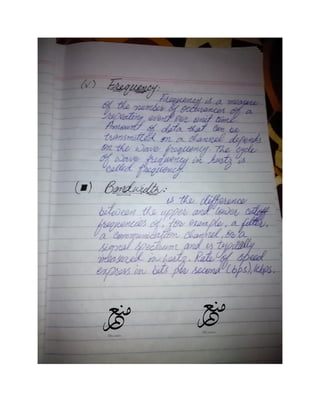 (v) Frequency:
Frequency is a measure
of the number of occurances of a
repeating event per unit time.
Amount of data that can be
transmitted on a channel depends
on the wave frequency. The cycle
of wave frequency in hertz is
called frequency.
Bandwidth:
is the difference
between the upper and lower cutoff
frequencies of, for example, a filter,
a communication channel, or a
signal spectrum and is typically
measured in hertz. Rate of speed
express in bits per second (bps), kbps.